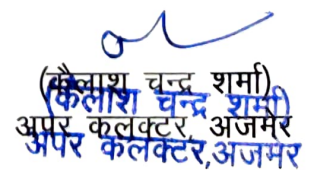 (कैलाश चन्द्र शर्मा)
(कैलाश चन्द्र शर्मा)
अपर कलक्टर, अजमेर
अपर कलक्टर,अजमेर